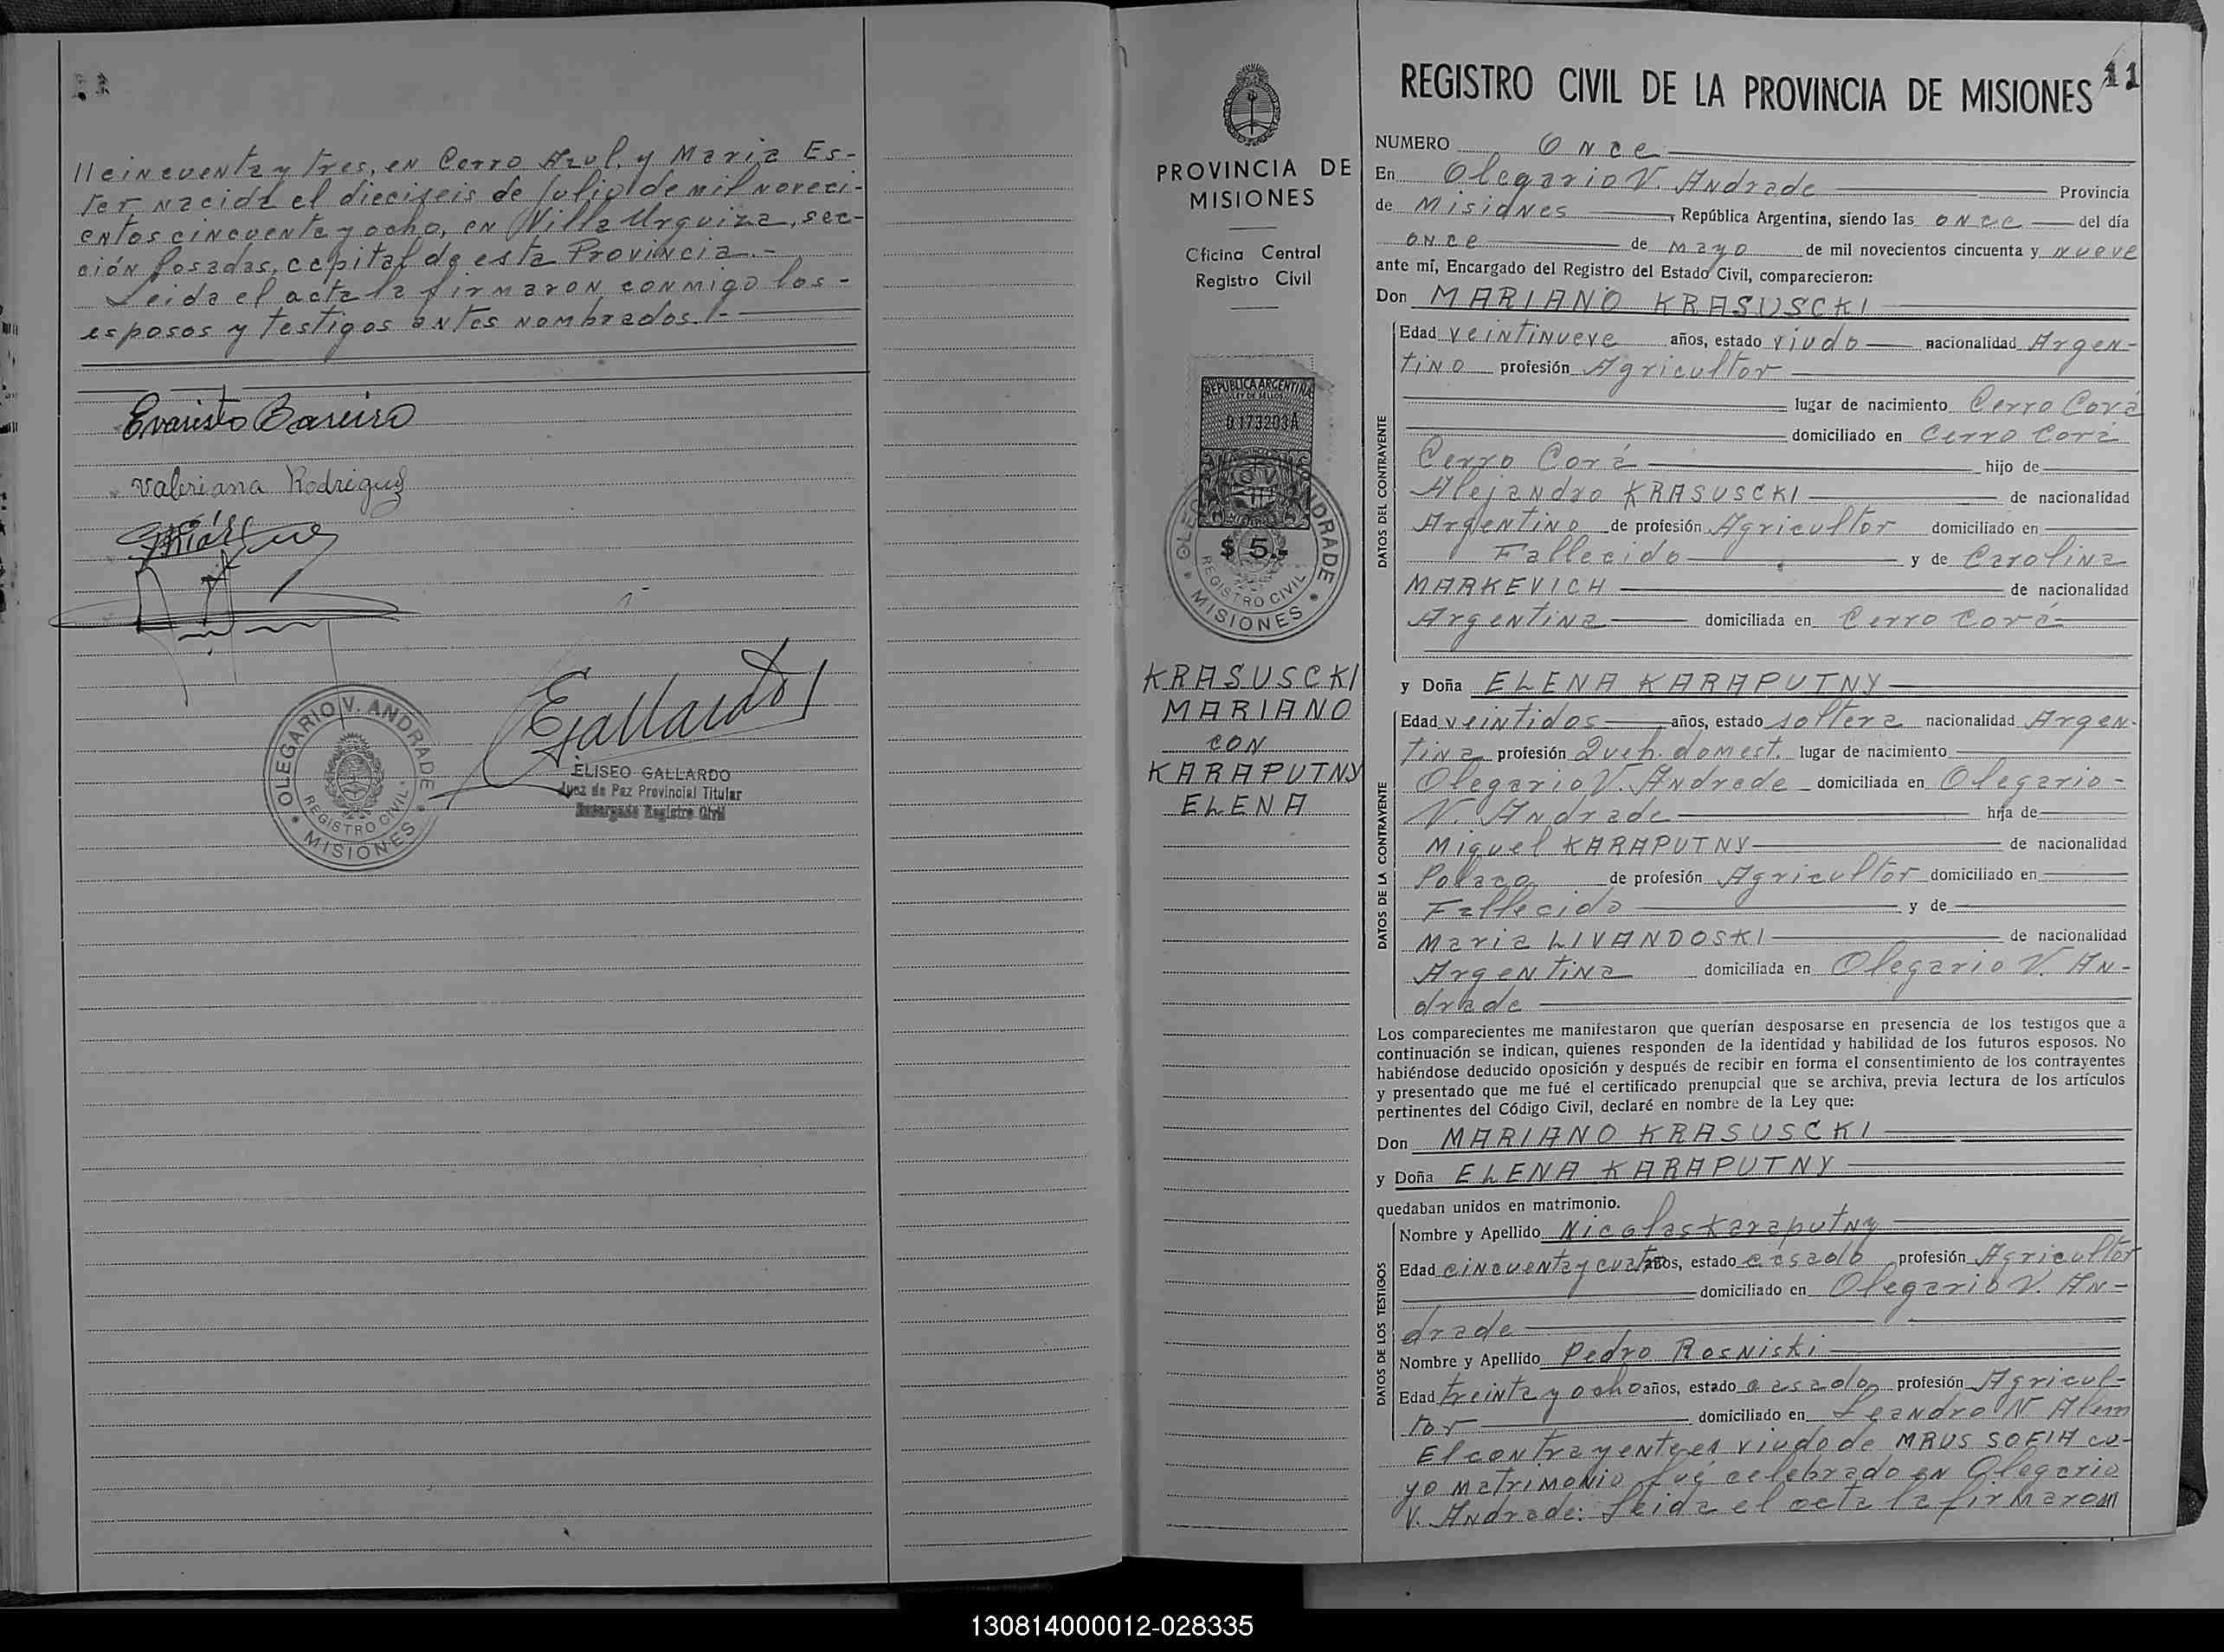 //cincuenta y tres, en Cerro Azul, y Maria Es-
ter nacida el dieciseis de Julio de mil noveci-
entos cincuenta y ocho, en Villa Urquiza, sec-
ción Posadas, capital de esta Provincia.-
Leida el acta la firmaron conmigo los -
esposos y testigos antes nombrados.-
Evaristo Bareiro
Valeriana Rodriguez
OLEGARIO V. ANDRADE
REGISTRO CIVIL
MISIONES
EGallardo
ELISEO GALLARDO
Juez de Paz Provincial Titular
Encargado Registro Civil
PROVINCIA DE
MISIONES
Oficina Central
Registro Civil
REPUBLICA ARGENTINA
LEY DE SELLOS
0.173203A
$ 5.-
OLEGARIO V. ANDRADE
REGISTRO CIVIL
MISIONES
KRASUSCKI
MARIANO
CON
KARAPUTNY
ELENA
11
REGISTRO CIVIL DE LA PROVINCIA DE MISIONES
NUMERO Once
En Olegario V. Andrade Provincia
de Misiones, República Argentina, siendo las once del día
once de mayo de mil novecientos cincuenta y nueve
ante mí, Encargado del Registro del Estado Civil, comparecieron:
Don MARIANO KRASUSCKI
DATOS DEL CONTRAYENTE
Edad veintinueve años, estado viudo nacionalidad Argen-
tino profesión Agricultor
lugar de nacimiento Cerro Corá
domiciliado en Cerro Corá
Cerro Corá hijo de
Alejandro KRASUSCKI de nacionalidad
Argentino de profesión Agricultor domiciliado en
Fallecido y de Carolina
MARKEVICH de nacionalidad
Argentina domiciliada en Cerro Corá
y Doña ELENA KARAPUTNY
DATOS DE LA CONTRAYENTE
Edad veintidos años, estado soltera nacionalidad Argen-
tina profesión Queh. domest. lugar de nacimiento
Olegario V. Andrade domiciliada en Olegario -
V. Andrade hija de
Miguel KARAPUTNY de nacionalidad
Polaco de profesión Agricultor domiciliado en
Fallecido y de
Maria LIVANDOSKI de nacionalidad
Argentina domiciliada en Olegario V. An-
drade
Los comparecientes me manifestaron que querían desposarse en presencia de los testigos que a
continuación se indican, quienes responden de la identidad y habilidad de los futuros esposos. No
habiéndose deducido oposición y después de recibir en forma el consentimiento de los contrayentes
y presentado que me fué el certificado prenupcial que se archiva, previa lectura de los artículos
pertinentes del Código Civil, declaré en nombre de la Ley que:
Don MARIANO KRASUSCKI
y Doña ELENA KARAPUTNY
quedaban unidos en matrimonio.
DATOS DE LOS TESTIGOS
Nombre y Apellido Nicolas Karaputny
Edad cincuenta y cuatro años, estado casado profesión Agricultor
domiciliado en Olegario V. An-
drade
Nombre y Apellido Pedro Rosniski
Edad treinta y ocho años, estado casado profesión Agricul-
tor domiciliado en Leandro N Alem
El contrayente es viudo de MRUS SOFIA cu-
yo matrimonio fué celebrado en Olegario
V. Andrade: Leida el acta la firmaron//
130814000012-028335